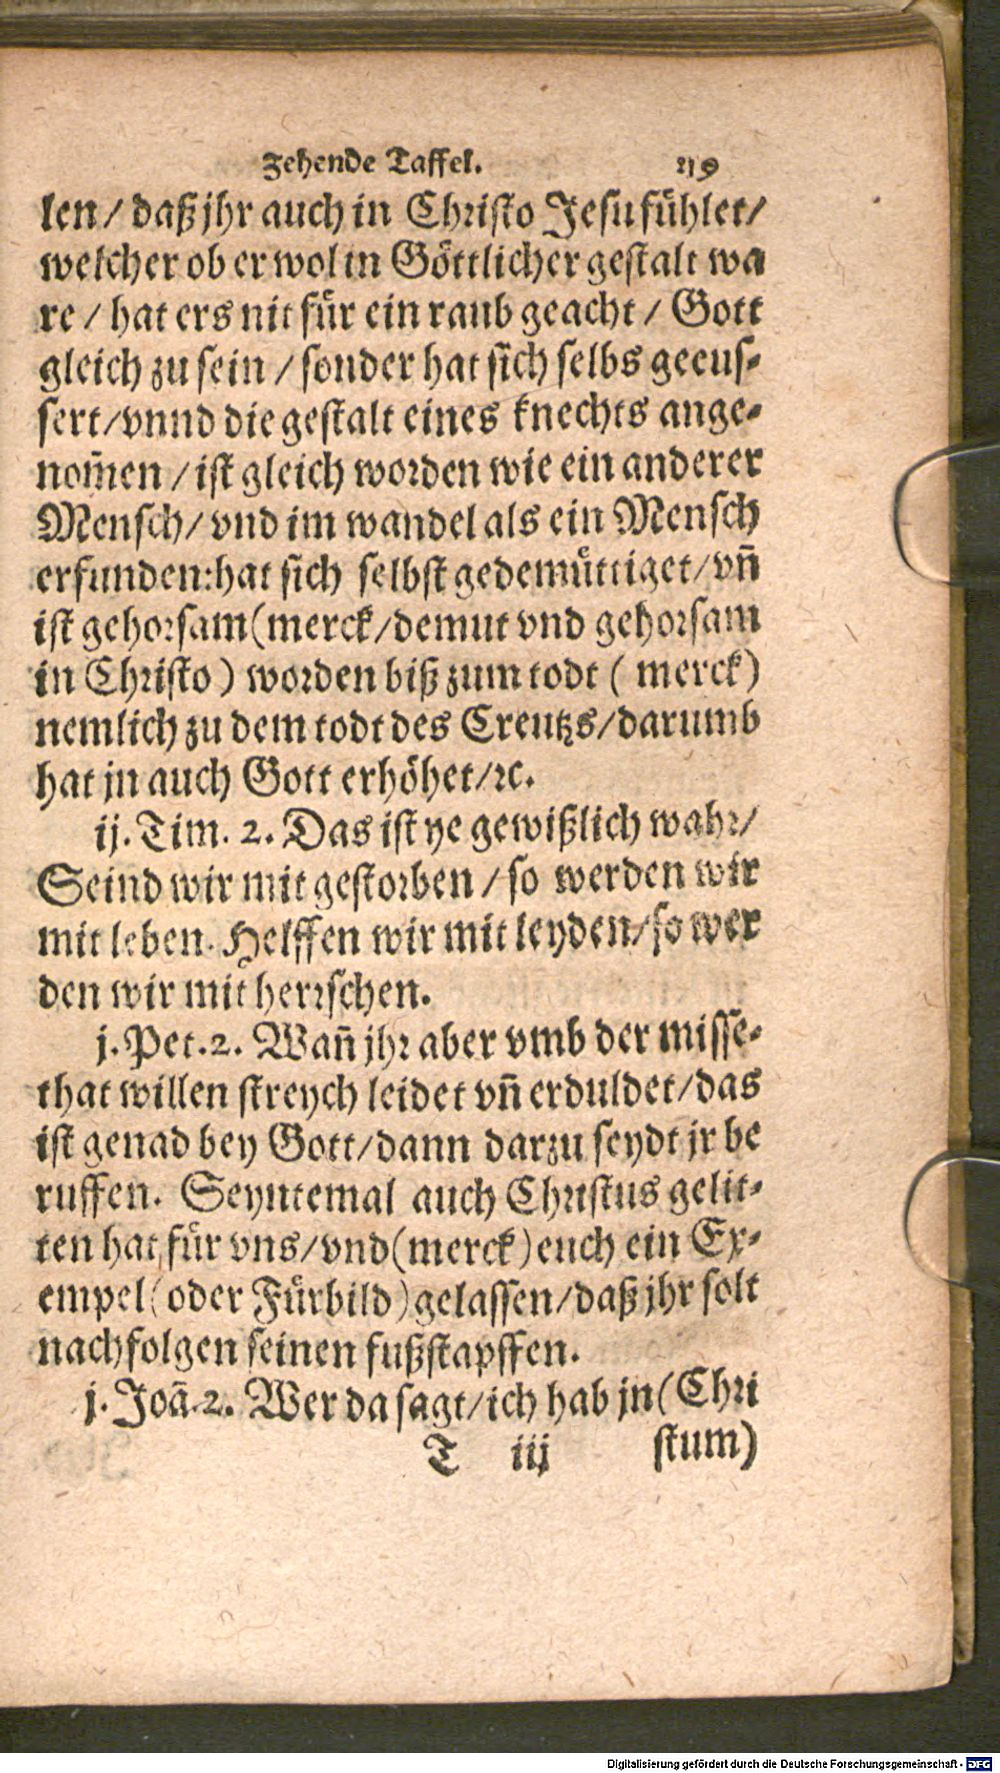 Zehende Taffel. 219
len / daß jhr auch in Christo Jesu fühlet /
welcher ob er wol in Göttlicher gestalt wa
re / hat ers nit für ein raub geacht / Gott
gleich zu sein / sonder hat sich selbs geeus-
sert / vnnd die gestalt eines knechts ange-
nom̄en / ist gleich worden wie ein anderer
Mensch / vnd im wandel als ein Mensch
erfunden: hat sich selbst gedemüttiget / vn̄
ist gehorsam (merck / demut vnd gehorsam
in Christo) worden biß zum todt ( merck)
nemlich zu dem todt des Creutzs / darumb
hat jn auch Gott erhöhet / ꝛc.
ij. Tim. 2. Das ist ye gewißlich wahr /
Seind wir mit gestorben / so werden wir
mit leben. Helffen wir mit leyden / so wer
den wir mit herrschen.
j. Pet. 2. Wan̄ jhr aber vmb der misse-
that willen streych leidet vn̄ erduldet / das
ist genad bey Gott / dann darzu seydt jr be
ruffen. Seyntemal auch Christus gelit-
ten hat für vns / vnd (merck) euch ein Ex-
empel (oder Fürbild) gelassen / daß jhr solt
nachfolgen seinen fußstapffen.
j. Joā. 2. Wer da sagt / ich hab jn (Chri
T iij stum)
Digitalisierung gefördert durch die Deutsche Forschungsgemeinschaft - DFG